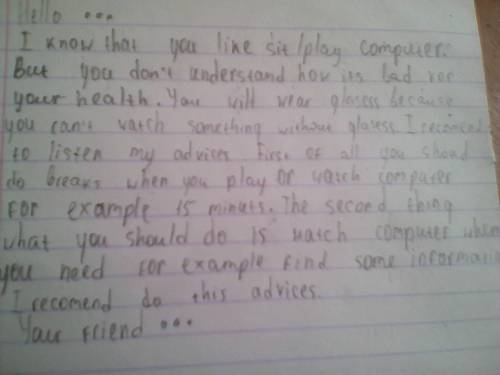 Hello •••
I know that you like sit/play computer.
But you don't understand how its bad for
your health. You will wear glasess because
you can't watch something without glasess. I recomend
to listen my advices. First of all you shoud
do breaks when you play or watch computer
For example 15 minuts. The second thing
what you should do is watch computer when
you need for example find some informati
I recomend do this advices.
Your friend •••